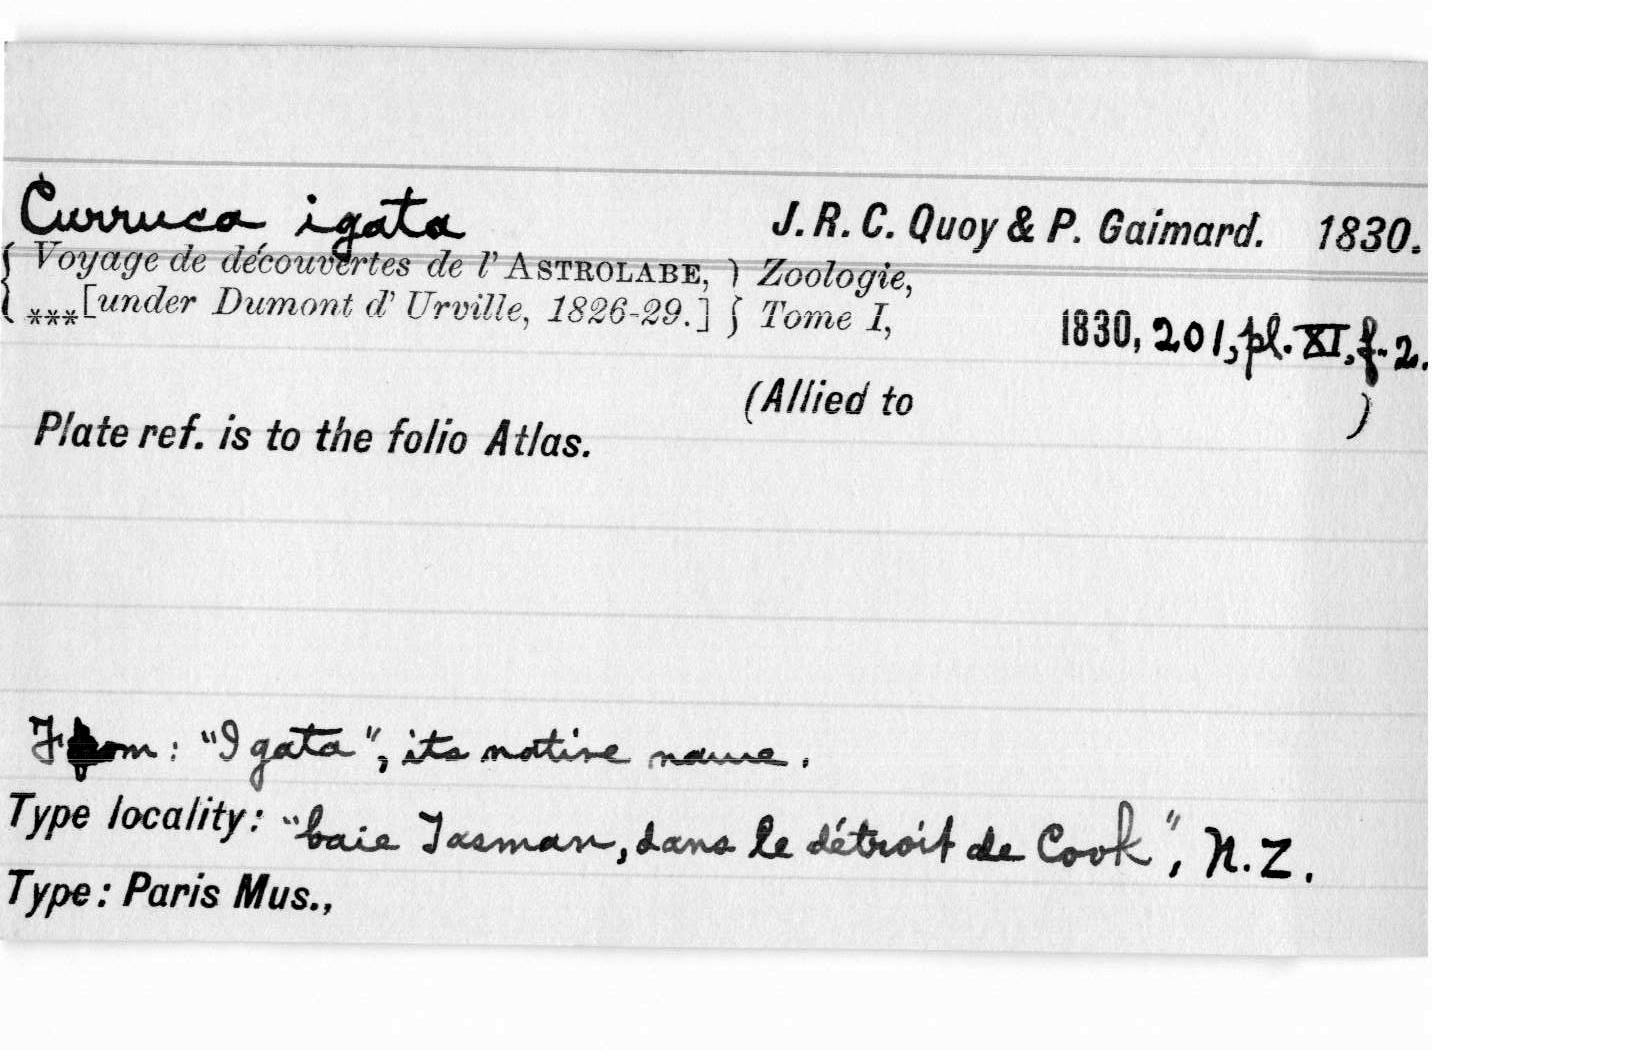 Curruca igata J. R. C. Quoy & P. Gaimard. 1830.
{ Voyage de découvertes de l' ASTROLABE, } Zoologie,
{ ***[under Dumont d' Urville, 1826-29.] } Tome I, 1830, 201, pl. XI, f. 2.
(Allied to )
Plate ref. is to the folio Atlas.
From: "Igata", its native name.
Type locality: "baie Tasman, dans le détroit de Cook", N.Z.
Type: Paris Mus.,